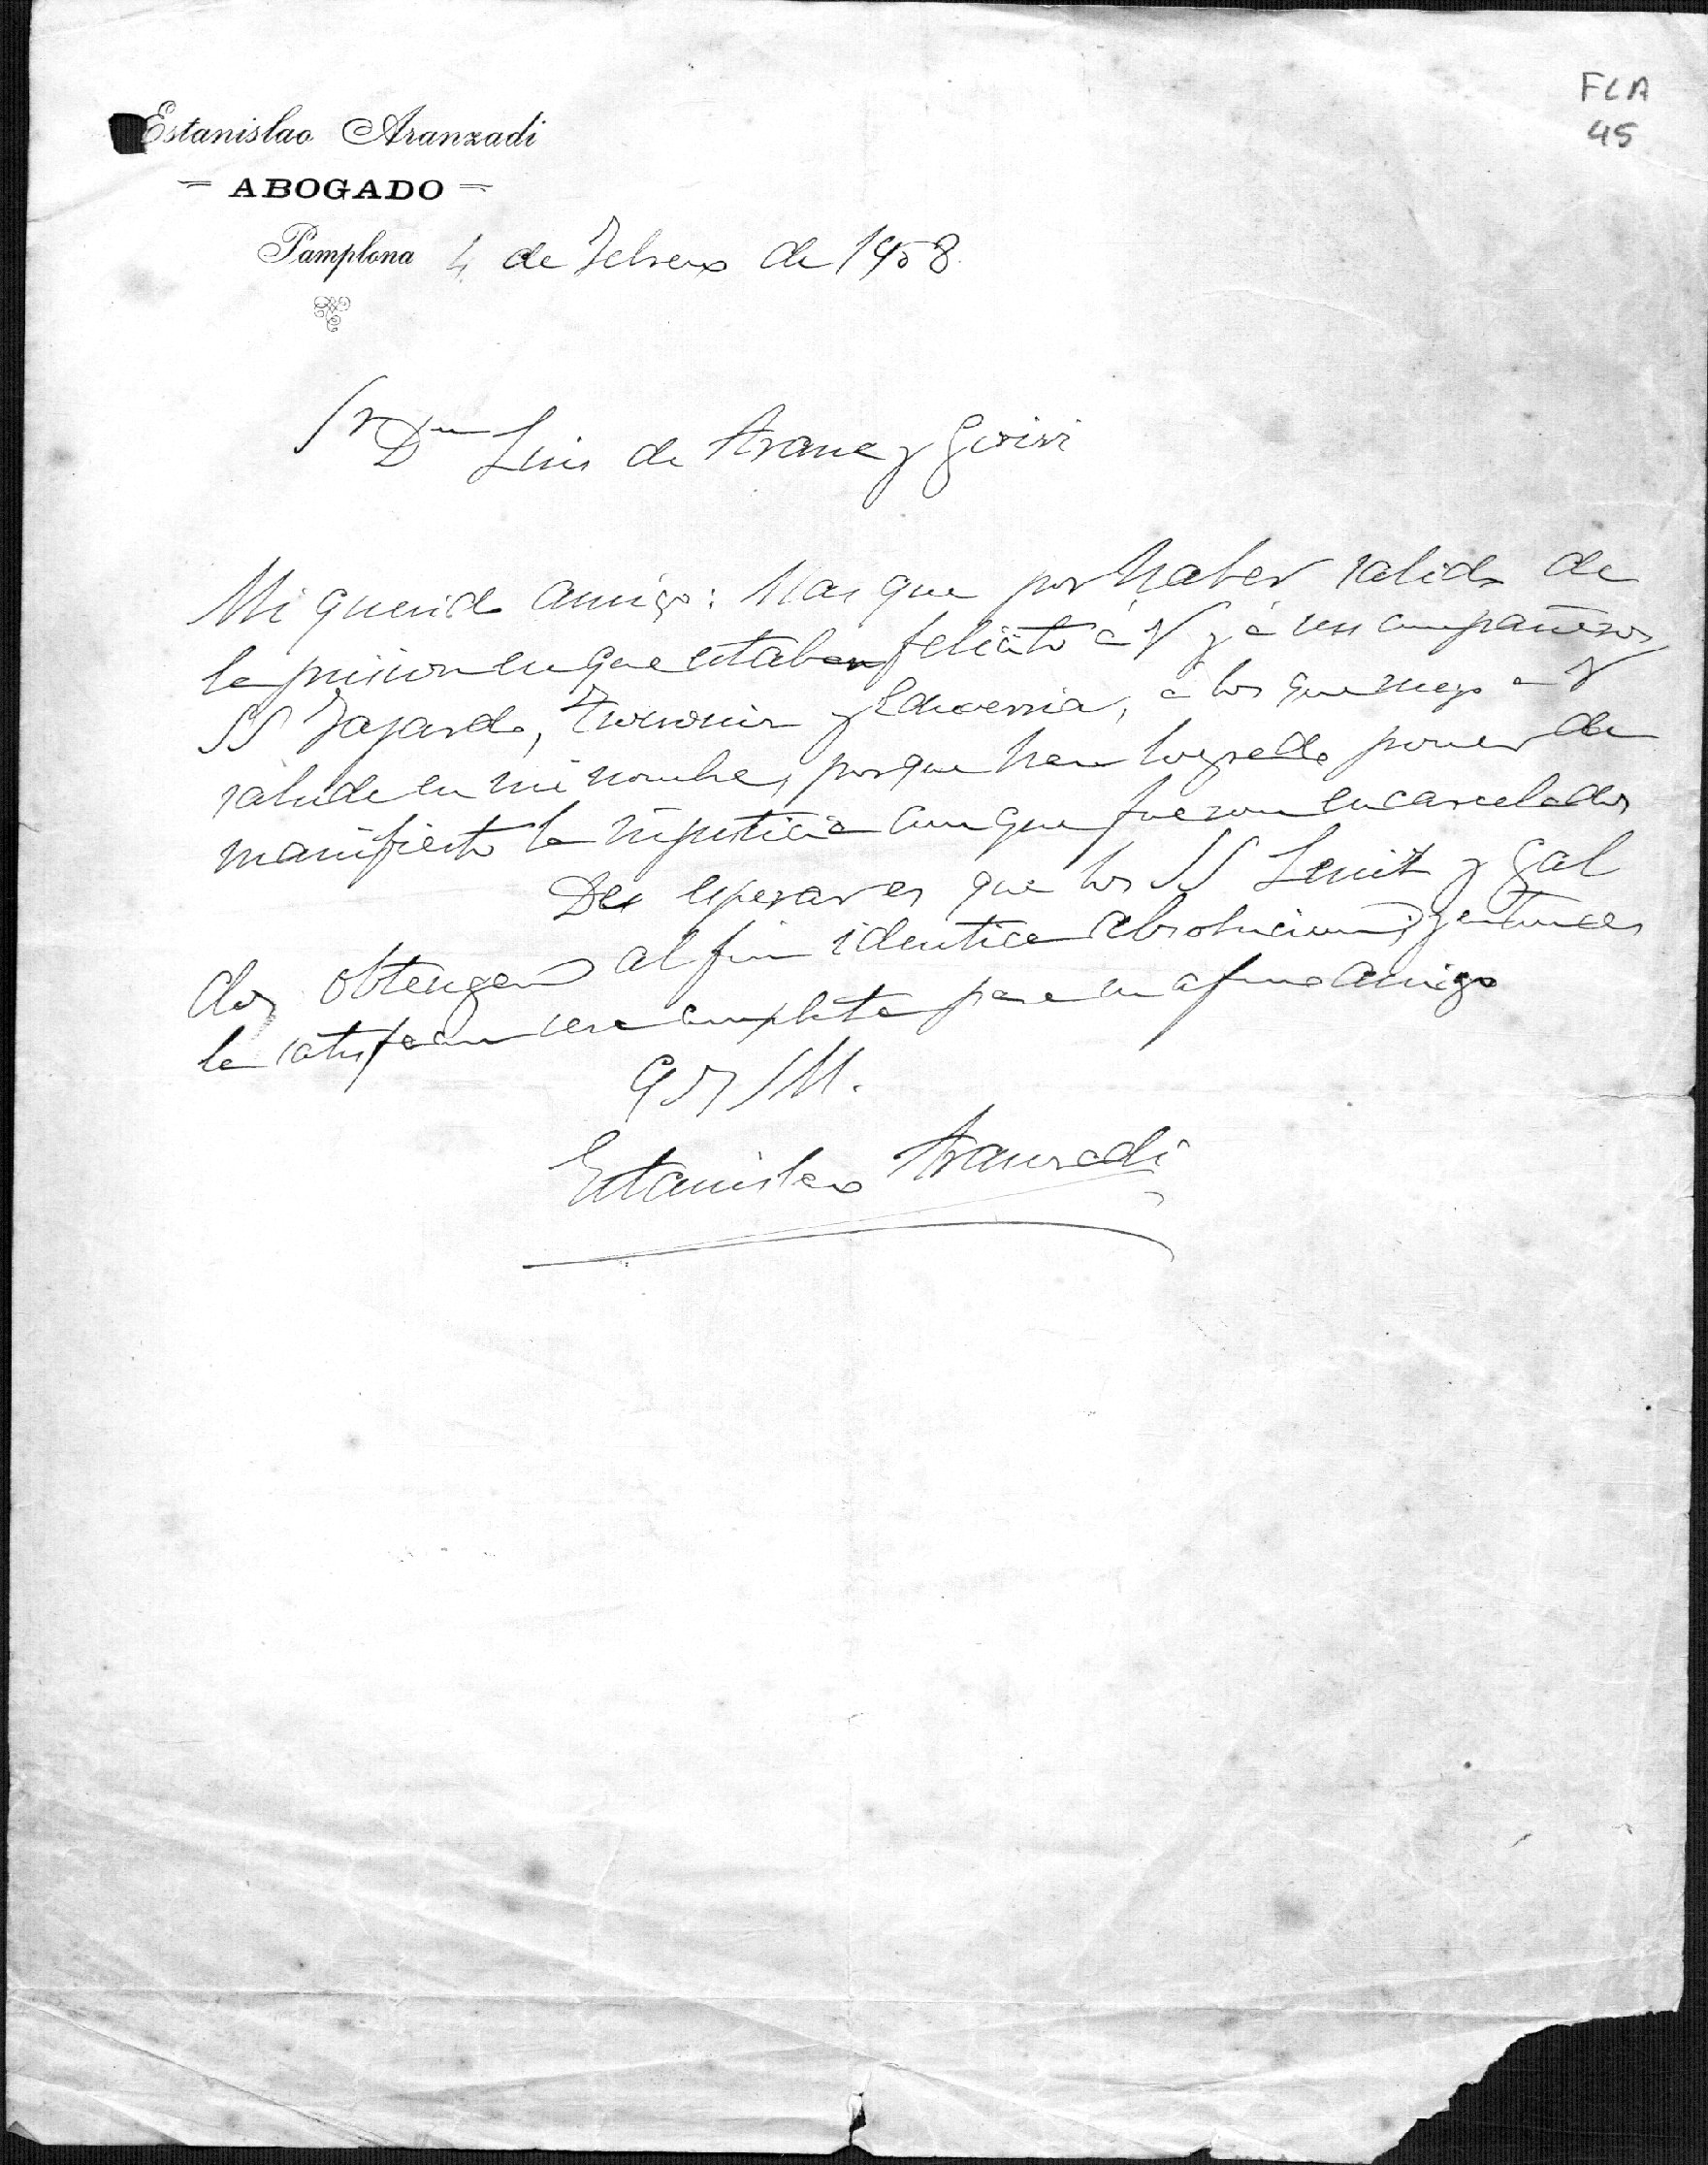 FLA
45
Estanislao Aranzadi
ABOGADO
Pamplona 4 de Febrero de 1908
Sr Dn Luis de Arana y Goiri
Mi querido amigo: Mas que por haber salido de
la prision en que estaban felicito á V y á sus compañeros
SS Fajardo, y Echeverria, á los que ruego á V
salude en mi nombre, porque han logrado poner de
manifiesto la injusticia con que fueron encarcelados
De esperar es que los SS y Gal
dos obtengan al fin identica absolucion y entonces
la satisfaccion sera completa para su afmo amigo
q s s M.
Estanislao Aranzadi